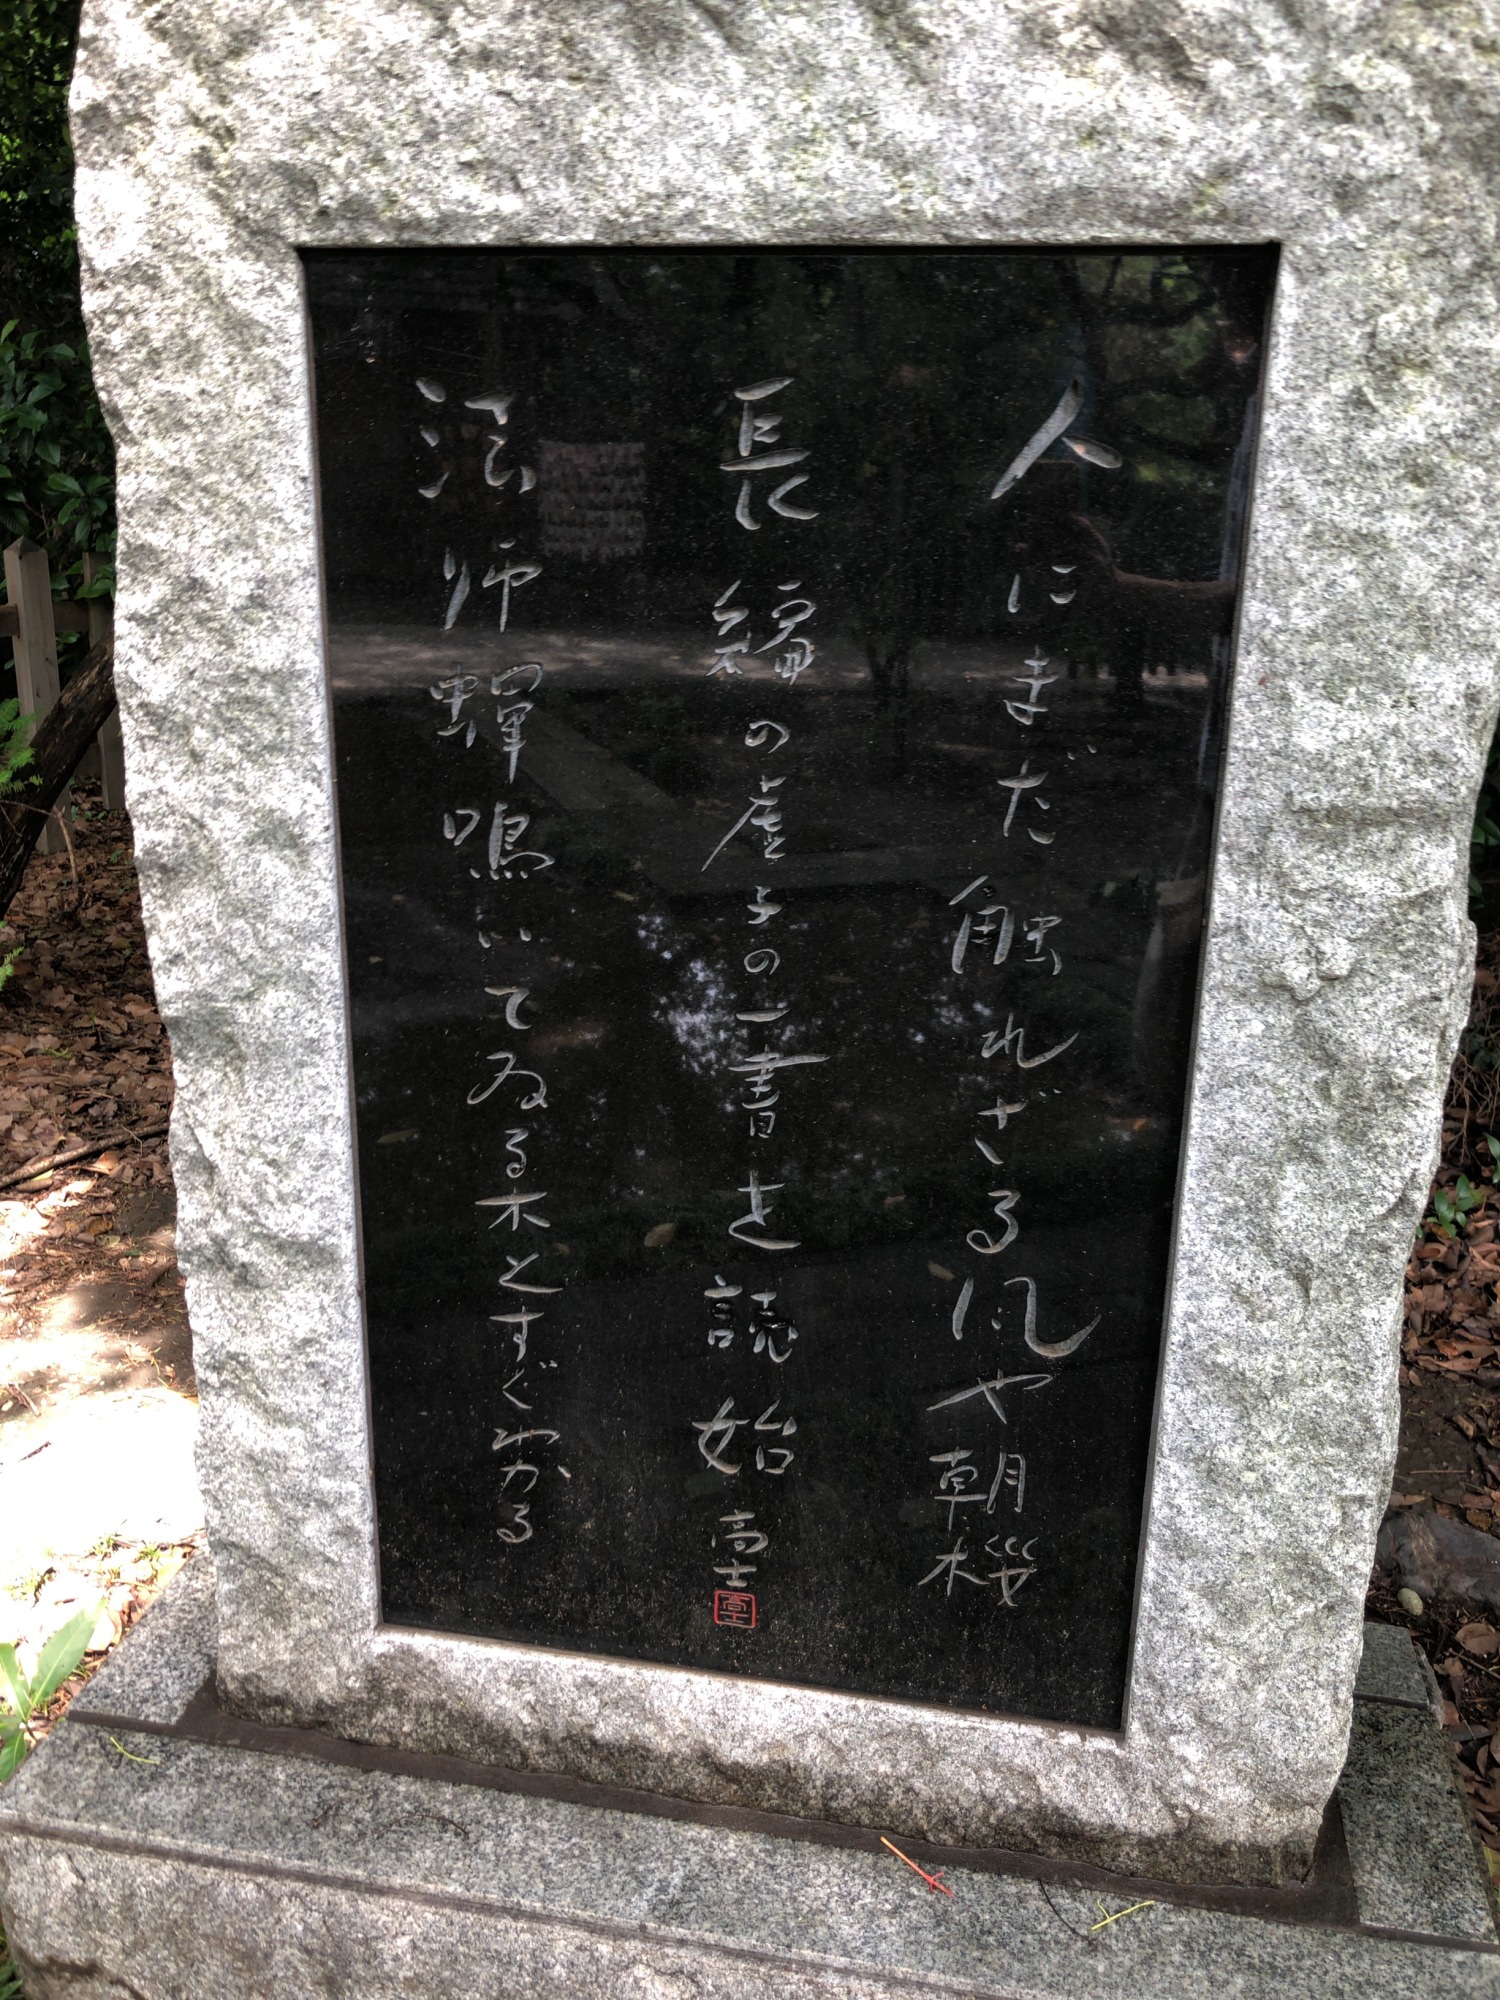 人にまだ触れざる風や朝桜
長編の虚子の一書を読始 高士
高士
法師蟬鳴いてゐる木とすぐわかる